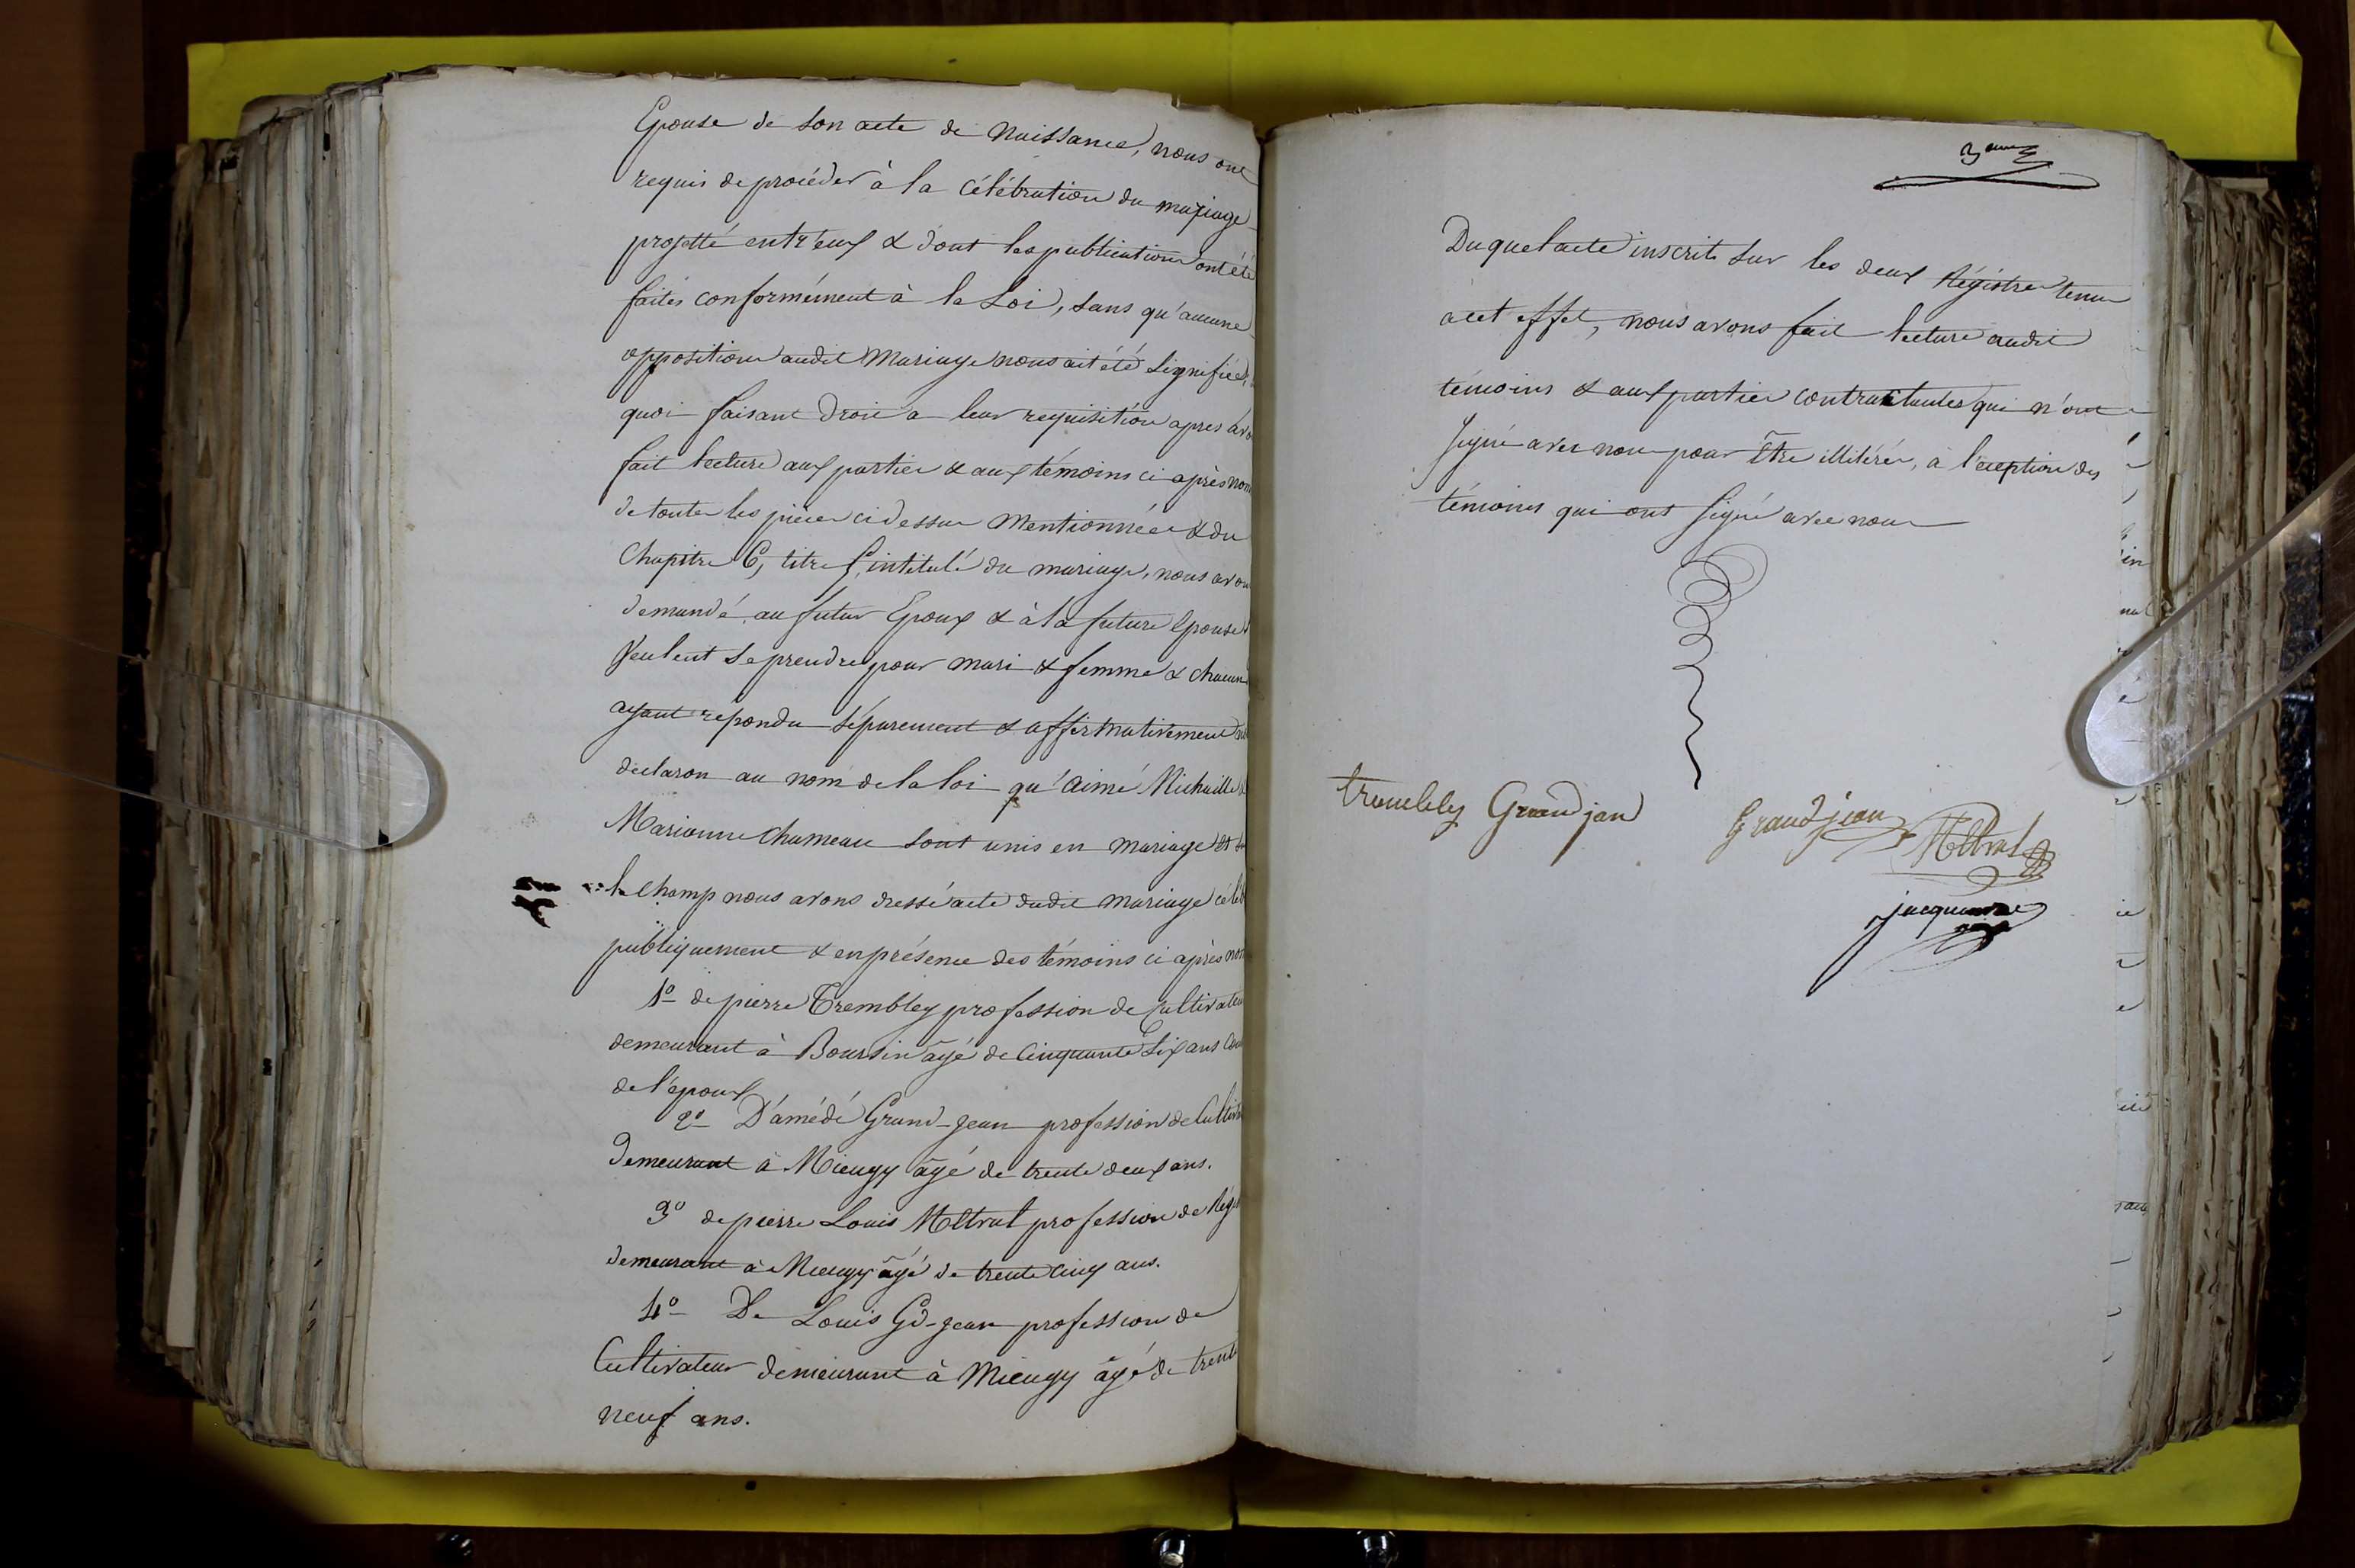 Epouse de son acte de Naissance, nous ont
requis de procéder à la Célébration du mariage
projetté entr'eux & dont les publications ont été
faites conformément à la Loi, sans qu'aucune
opposition audit Mariage nous ait été signifiée,
quoi faisant droit a leur requisition apres avo
fait lecture aux parties & aux témoins ci après nom
de toutes les pièces ci dessus Mentionnées & du
Chapitre 6, titre 5, intitulé du mariage, nous avon
demandé au futur Epoux & à la future Epouse s
Veulent se prendre pour mari & femme & chacun
ayant repondu séparement & affirmativement
declaron au nom de la loi qu'aimé Michaille &
Marianne Chameau sont unis en mariage et s
le Champ nous avons dressé acte dudit mariage célèb
publiquement & en présence des témoins ci après nom
1º de pierre Trembley profession de Cultivateu
demeurant à Boursin âgé de Cinquante six ans
de l'époux
2º D'amédé Grand-Jean profession de Cultiva
Demeurant à Mieugy âgé de trente deux ans.
3º de pierre Louis Mttral profession de Rég
demeurant à Mieugy âgé de trente cinq ans.
4º De Louis Gd-Jean profession de
Cultivateur demeurant à Mieugy âgé de trente
neuf ans.
Duquel acte inscrit sur les deux Régistres tenus
à cet effet, nous avons fait lecture audit
témoins & aux parties contractantes qui n'ont
signé avec nous pour être illitérés, à l'eception des
témoins qui ont signé avec nous
trembley Grandjan
Grandjean
Mttral